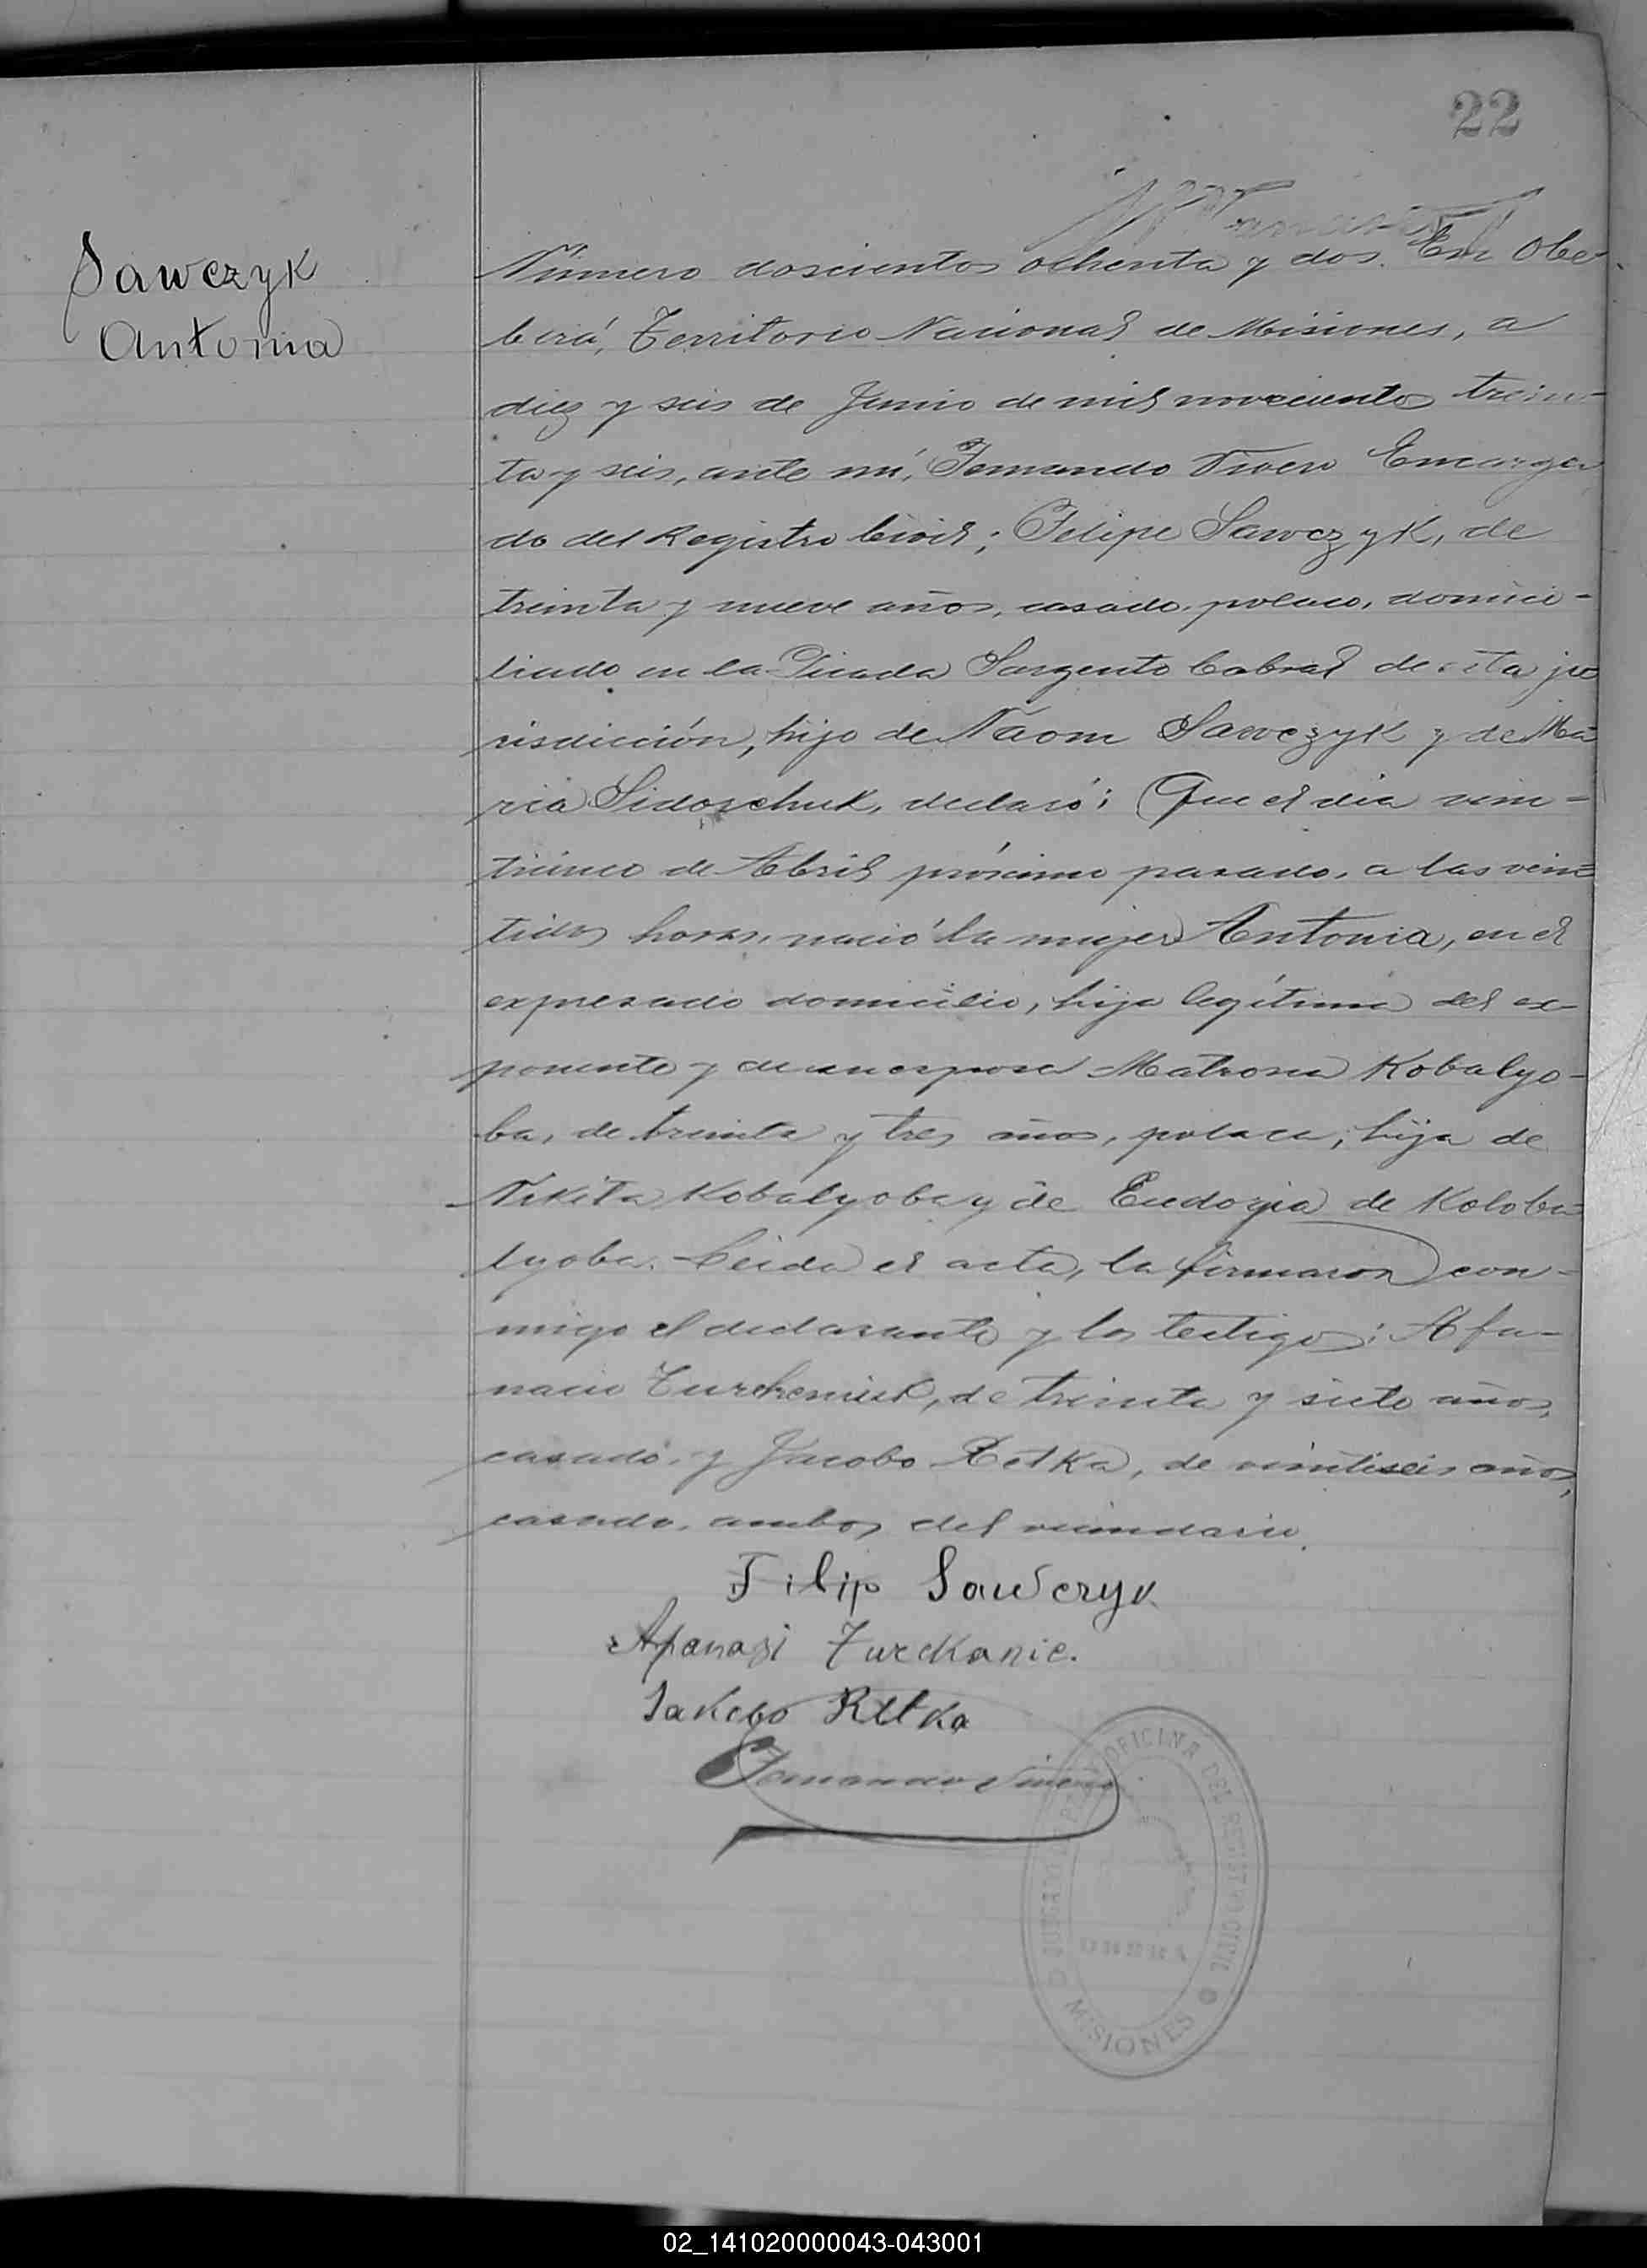 22
Sawczyk
Antonia
Número doscientos ochenta y dos. En Obe-
berá, Territorio Nacional de Misiones, a
diez y seis de Junio de mil novecientos trein-
ta y seis, ante mí, Fernando Encarga
do del Registro Civil; Felipe Sawczyk, de
treinta y nueve años, casado, polaco, domici-
liado en la Picada Sargento Cabral de esta ju
risdicción, hijo de Naom Sawczyk y de Ma
ria Sidorchuk, declaró: Que el dia vein-
ticinco de Abril próximo pasado, a las vein-
tidos horas, nació la mujer Antonia, en el
expresado domicilio, hija legítima del ex-
ponente y de su esposa Matrona Kobalyo-
ba, de treinta y tres años, polaca, hija de
Nikita Kobalyoba y de Eudozia de Koloba-
lyoba. Leida el acta, la firmaron con-
migo el declarante y los testigos: Afa-
nacio Turcheniuk, de treinta y siete años,
casado, y Jacobo Retka, de veintiseis años,
casado, ambos del vecindario.
Filip Sawczyk
Apanazi Turckanie.
Jakobo Retka
Fernando
OFICINA DEL REGISTRO CIVIL
JUZGADO DE PAZ
MISIONES
02_141020000043-043001